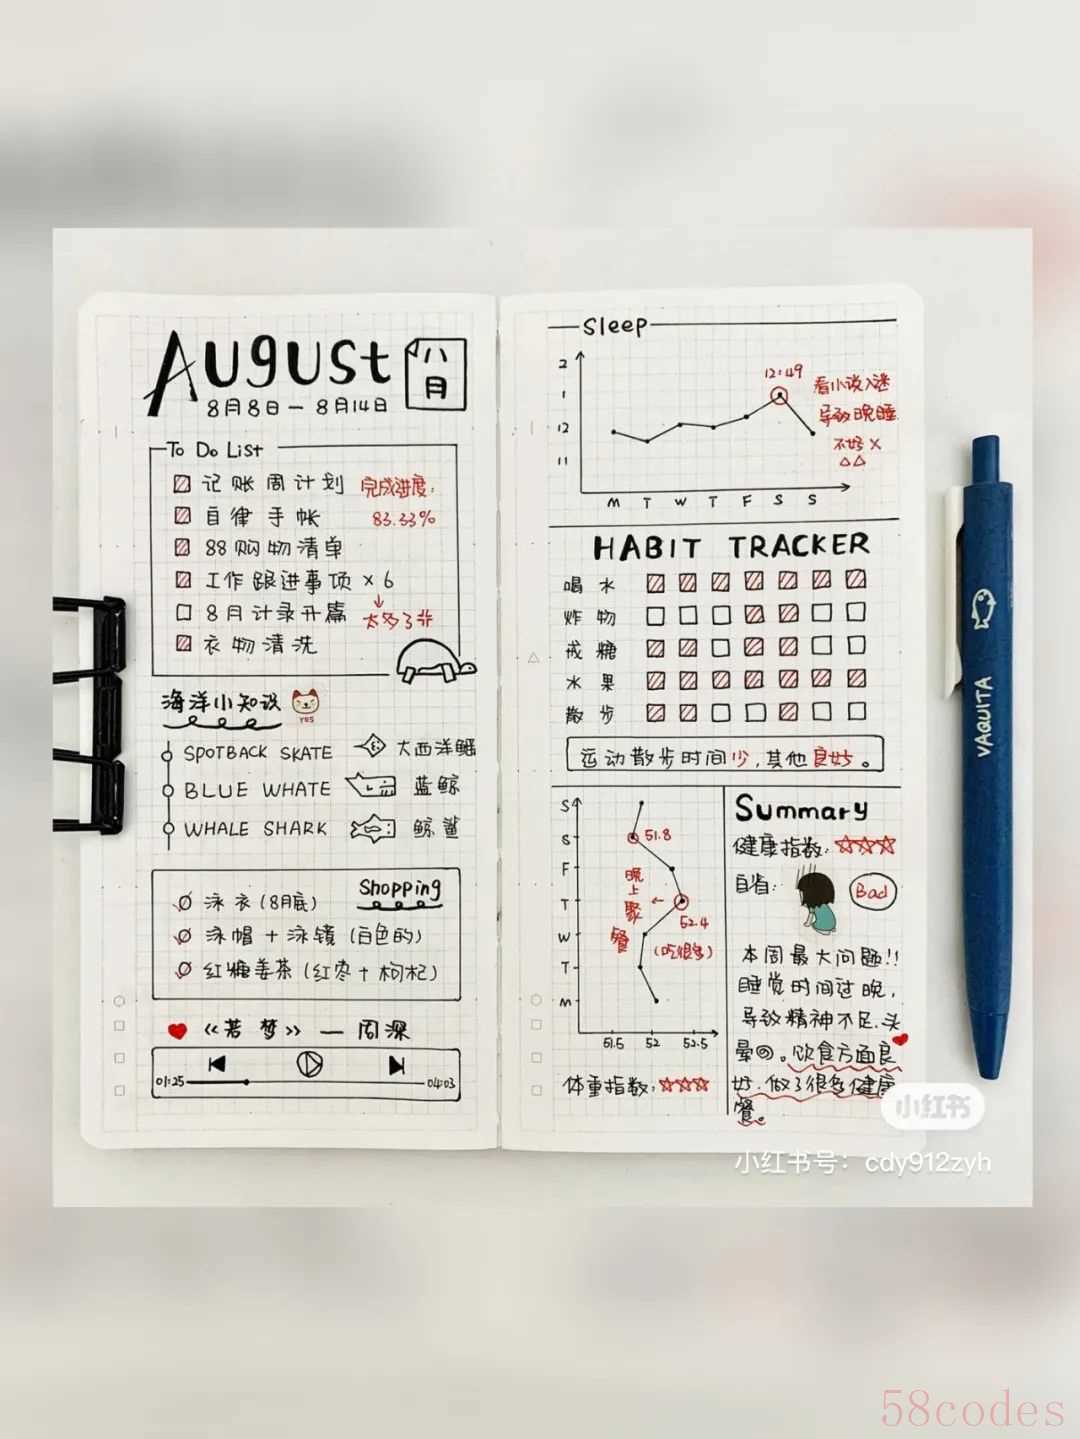 August
八月
8月8日 — 8月14日
To Do List
记账周计划
完成进度:
自律手帐
83.33%
88购物清单
工作跟进事项 × 6
8月计录开篇
太多了
衣物清洗
海洋小知识
YES
SPOTBACK SKATE 大西洋鳐
BLUE WHATE 蓝鲸
WHALE SHARK 鲸鲨
Shopping
泳衣(8月底)
泳帽 + 泳镜(白色的)
红糖姜茶(红枣 + 枸杞)
《若梦》 — 周深
01:25 04:03
Sleep
2
1
12
11
12:49
看小说入迷
导致晚睡
不好 ×
M T W T F S S
HABIT TRACKER
喝水
炸物
戒糖
水果
散步
运动散步时间少,其他良好。
S
S
F
T
W
T
M
51.8
晚上聚餐
52.4
(吃很多)
51.5 52 52.5
体重指数:☆☆☆
Summary
健康指数:☆☆☆
自省:
Bad
本周最大问题!!
睡觉时间过晚,
导致精神不足.头
晕。饮食方面良
好.做了很多健康
餐。
VAQUITA
小红书
小红书号:cdy912zyh
58codes